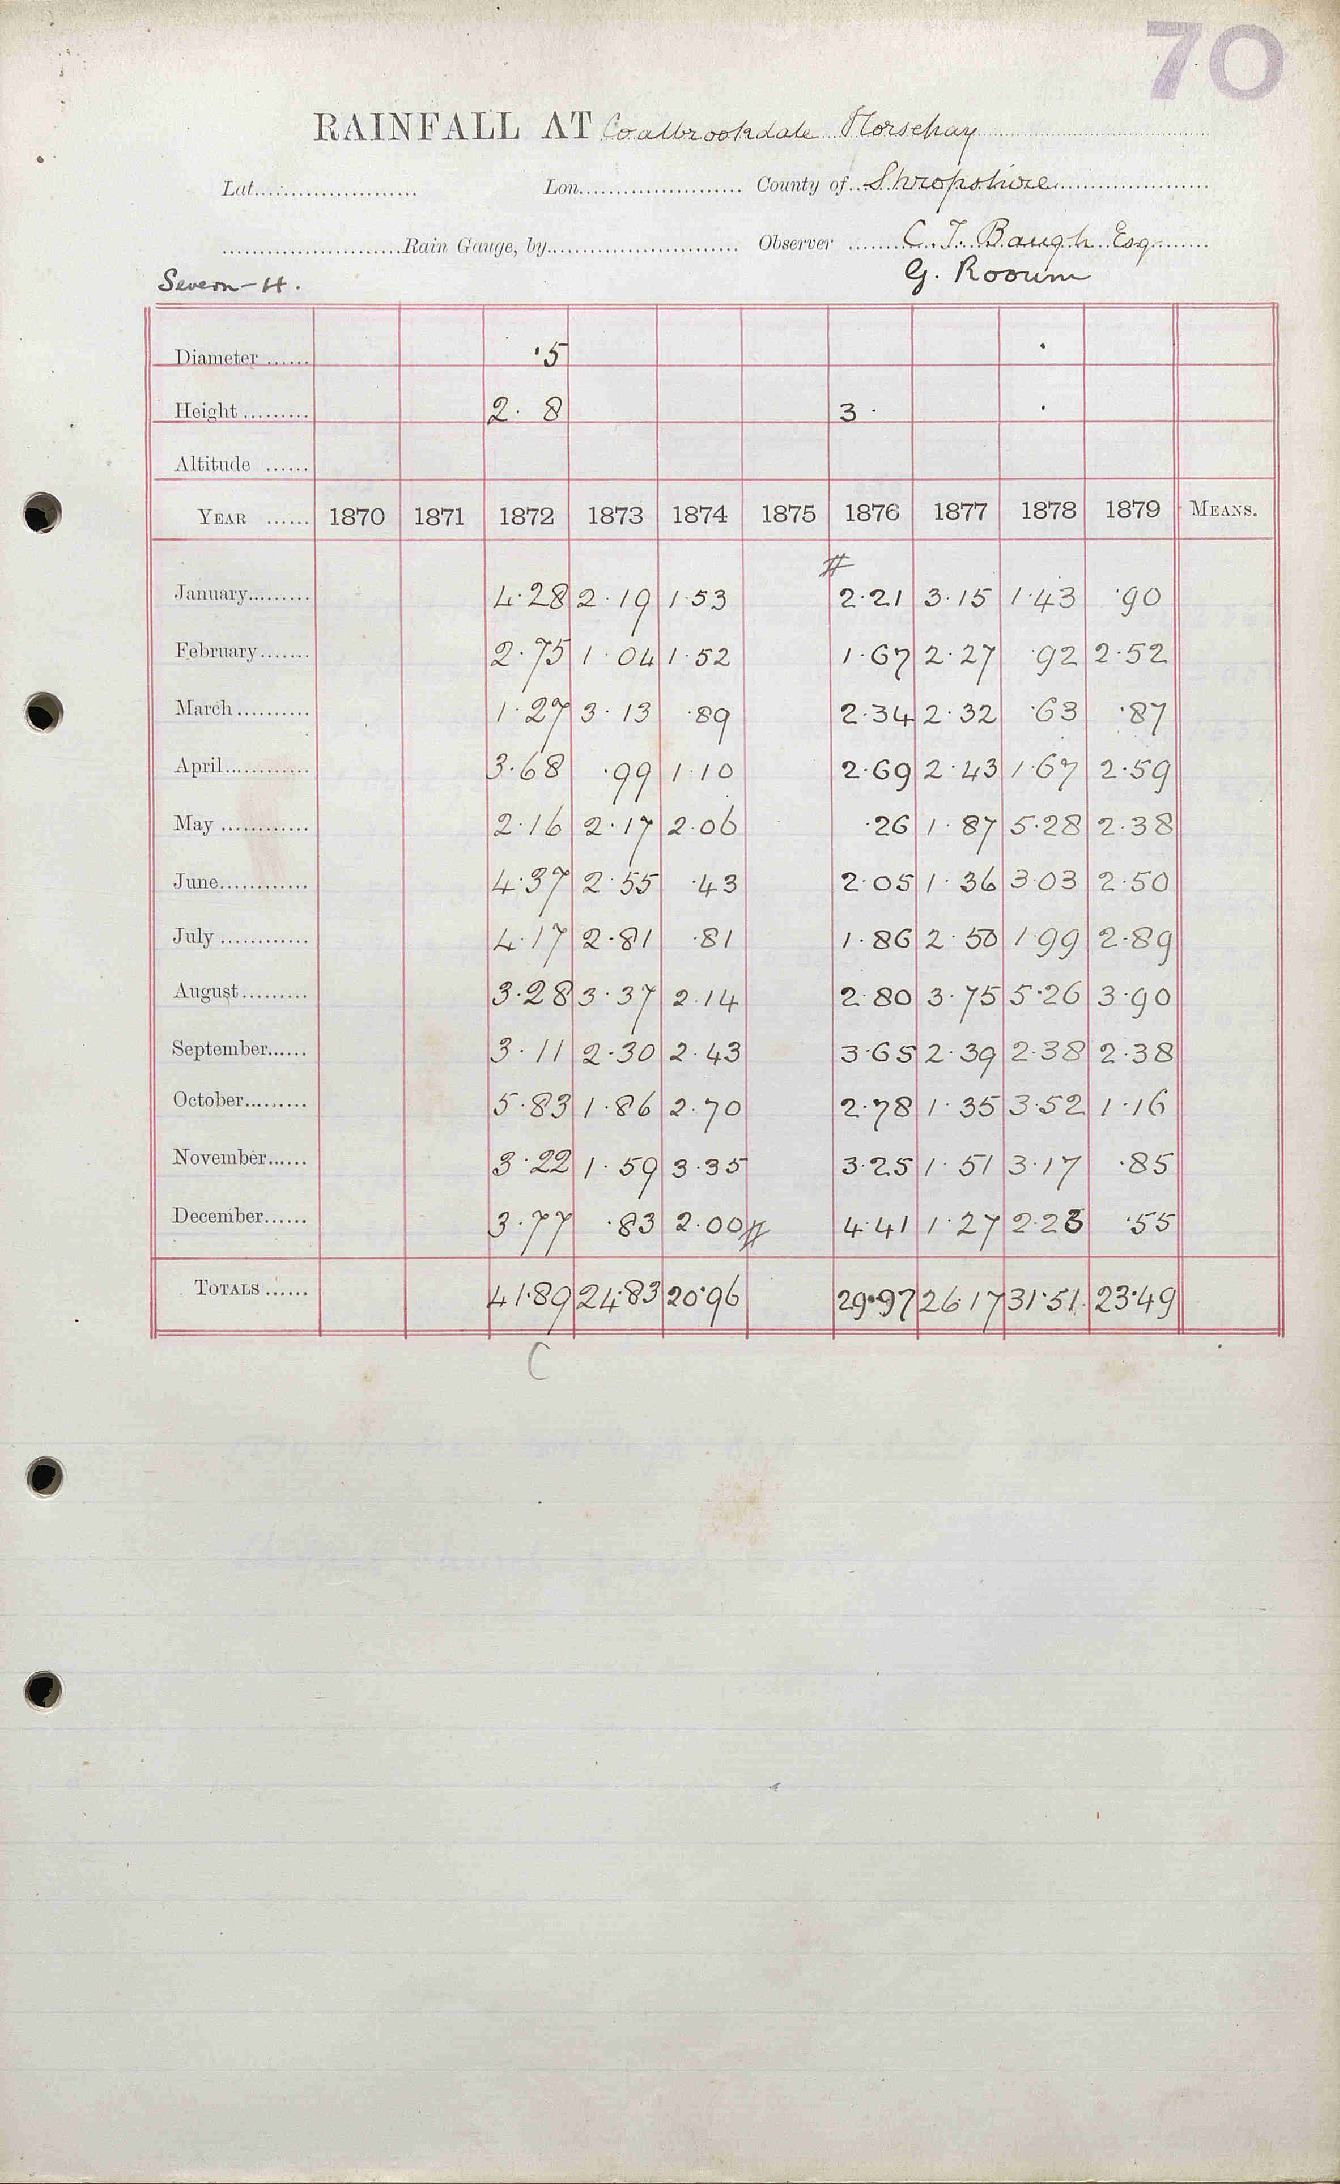 70
RAINFALL AT Coalbrookdale Horsehay
Lat. Lon. County of Shropshire
Rain Gauge, by Observer C. J. Baugh Esq
Severn-H. G. Roorim
Diameter ·5
Height 2. 8 3 ·
Altitude
YEAR 1870 1871 1872 1873 1874 1875 1876 1877 1878 1879 MEANS.
#
January 4·28 2·19 1·53 2·21 3·15 1·43 ·90
February 2·75 1·04 1·52 1·67 2·27 ·92 2·52
March 1·27 3·13 ·89 2·34 2·32 ·63 ·87
April 3·68 ·99 1·10 2·69 2·43 1·67 2·59
May 2·16 2·17 2·06 ·26 1·87 5·28 2·38
June 4·37 2·55 ·43 2·05 1·36 3·03 2·50
July 4·17 2·81 ·81 1·86 2·50 1·99 2·89
August 3·28 3·37 2·14 2·80 3·75 5·26 3·90
September 3·11 2·30 2·43 3·65 2·39 2·38 2·38
October 5·83 1·86 2·70 2·78 1·35 3·52 1·16
November 3·22 1·59 3·35 3·25 1·51 3·17 ·85
December 3·77 ·83 2·00 # 4·41 1·27 2·23 ·55
TOTALS 41·89 24·83 20·96 29·97 26·17 31·51 23·49
C